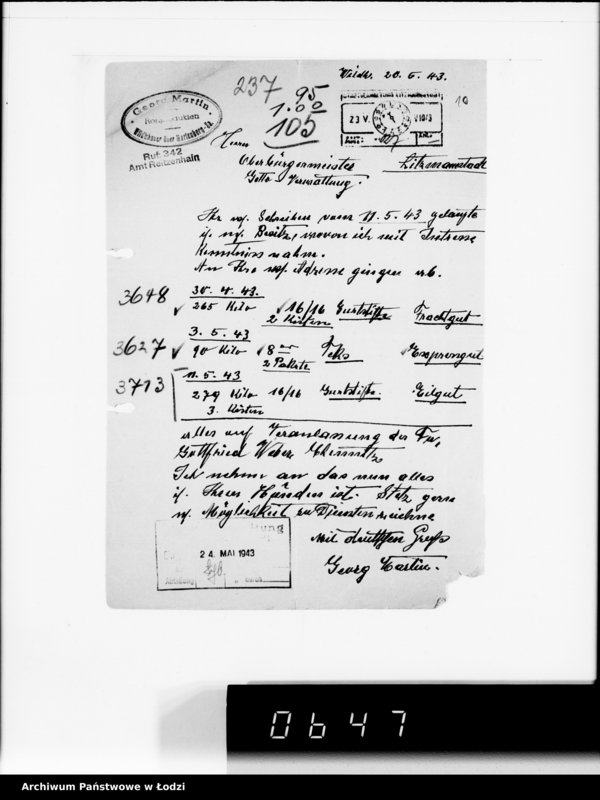 237
95
1.00
105
Waldh. 20.5.43.
10
Georg Martin
Ruf: 342
Amt Reitzenhain
23 V.
V 1943
Herrn
Oberbürgermeister Litzmannstadt
Getto-Verwaltung.
Ihr w. Schreiben vom 11.5.43 gelangte
i. m. Besitz, wovon ich mit Intresse
Kenntniss nahm.
An Ihre w. Adresse gingen ab.
30.4.43.
3648 265 Kilo 16/16 Gurtstifte Frachtgut
2 Kisten
3.5.43
3627 90 Kilo 8 Teks Expressgut
2 Pakete
11.5.43
3713 279 Kilo 16/16 Gurtstifte. Eilgut
3. Kisten
alles auf Veranlassung der Fa.
Gottfried Weber Chemnitz
Ich nehme an das nun alles
i. Ihren Händen ist. Stets gern
n. Möglichkeit zu Diensten zeichne
mit deutschen Gruß
Georg Martin.
24. MAI 1943
0647
Archiwum Państwowe w Łodzi